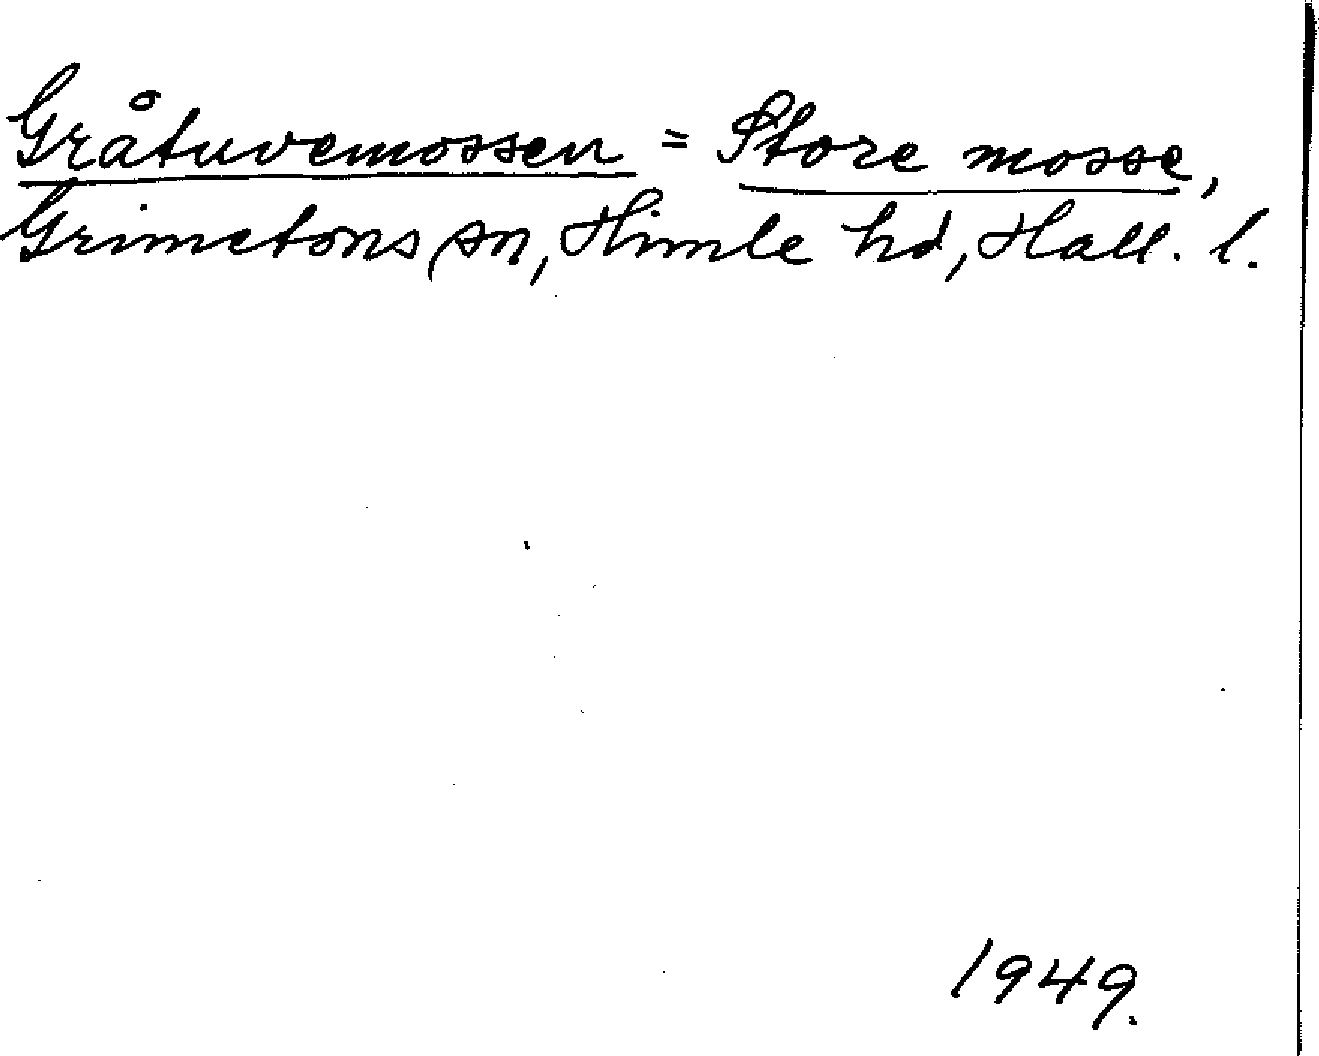 Gråtuvemossen = Store mosse,
Grimetons sn, Himle hd, Hall. l.
1949.